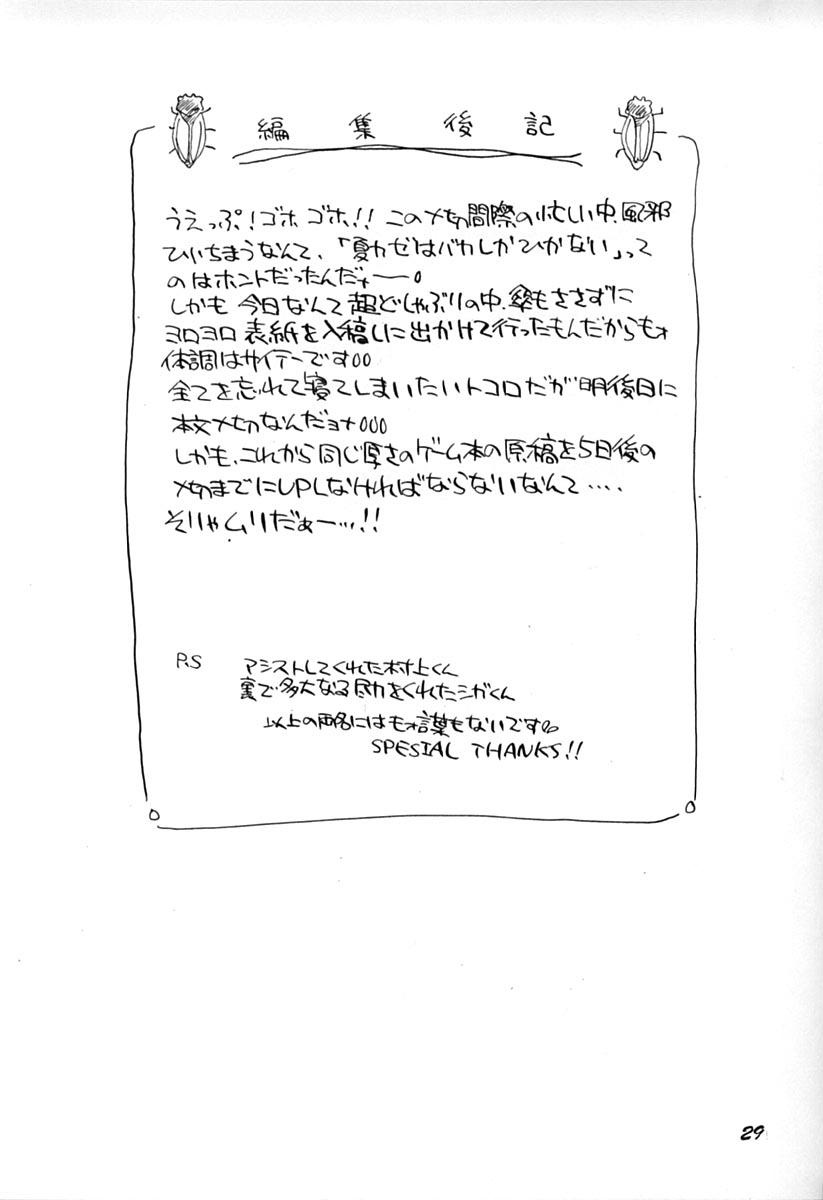 編集後記
うえっぷ!ゴホ ゴホ!! この〆切間際の忙しい中、風邪
ひいちまうなんて、「夏カゼはバカしかひかない」って
のはホントだったんだナー。
しかも 今日なんて 超どしゃぶりの中、傘もささずに
ヨロヨロ 表紙を入稿しに出かけて行ったもんだからもォ
体調はサイテーです。。
全てを忘れて寝てしまいたいトコロだが 明後日に
本文〆切なんだョナ。。。
しかも、これから 同じ厚さのゲーム本の原稿を5日後の
〆切までにUPしなければならないなんて‥‥
そりゃムリだぁー…!!
P.S アシストしてくれた村上くん
裏で多大なる尽力をくれたシガくん
以上の両名にはもォ言葉もないです。。
SPESIAL THANKS!!
29